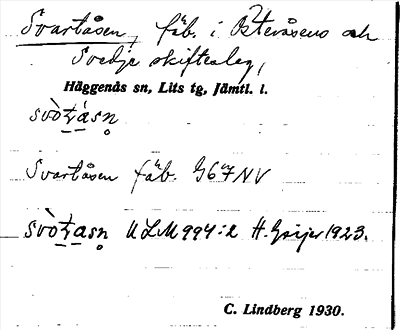 Svartåsen, fäb. i Österåsens och
Svedje skifteslag,
Häggenås sn, Lits tg, Jämtl. l.
svòt̠á̠sn̥
Svartåsen fäb. G67NV
svòt̠a̠sn̥ ULM 994:2 H. Geijer 1923.
C. Lindberg 1930.